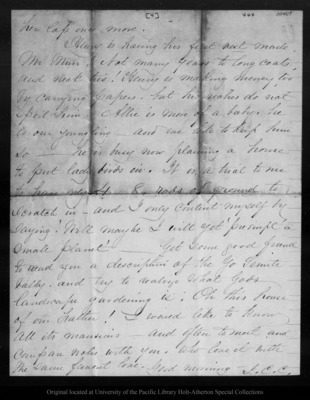 [4]
her lap once more.
Henry is having his first suit made
Mr Muir! Not many years to long coats
and neck ties! Henry is making money too
by carrying papers. but his riches do not
spoil him. Allie is more of a baby. he
is our youngling - and we like to keep him
so - he is busy now planning a house
to put lady birds in. It is a trial to me
to have only 8 rods of ground to
scratch in - and I only content myself by
saying "Well maybe I will get a
small planet" Get some good friend
to send you a description of the Yo Semite
Valley. and try to realize what God's
landscape gardening is. Oh this house
of our Father! I would like to know
all its mansions - and often to meet and
compare notes with you. who love it with
the same fervent love. Good morning J. C. C.
Original located at University of the Pacific Library Holt-Atherton Special Collections